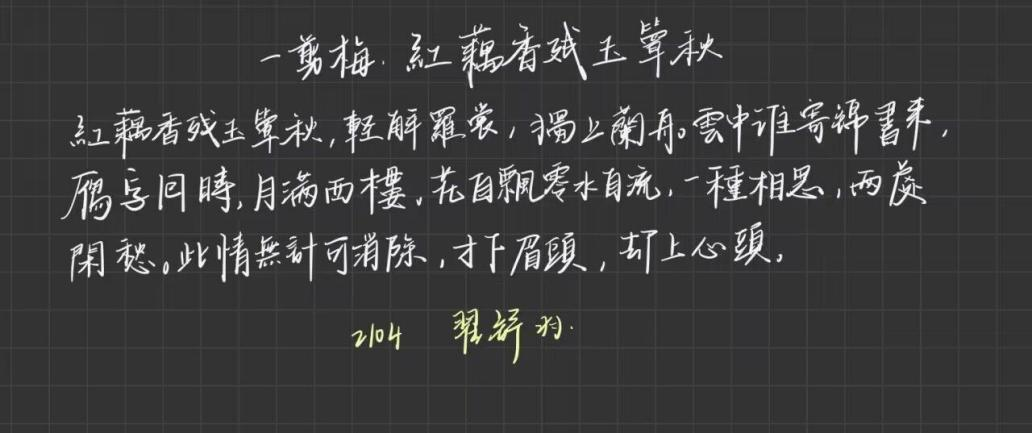 一剪梅·紅藕香残玉簟秋
紅藕香残玉簟秋,軽解羅裳,獨上蘭舟。雲中谁寄錦書来,
雁字囘時,月满西樓。花自飄零水自流,一種相思,两處
閑愁。此情無計可消除,才下眉頭,却上心頭。
2104 翟舒羽